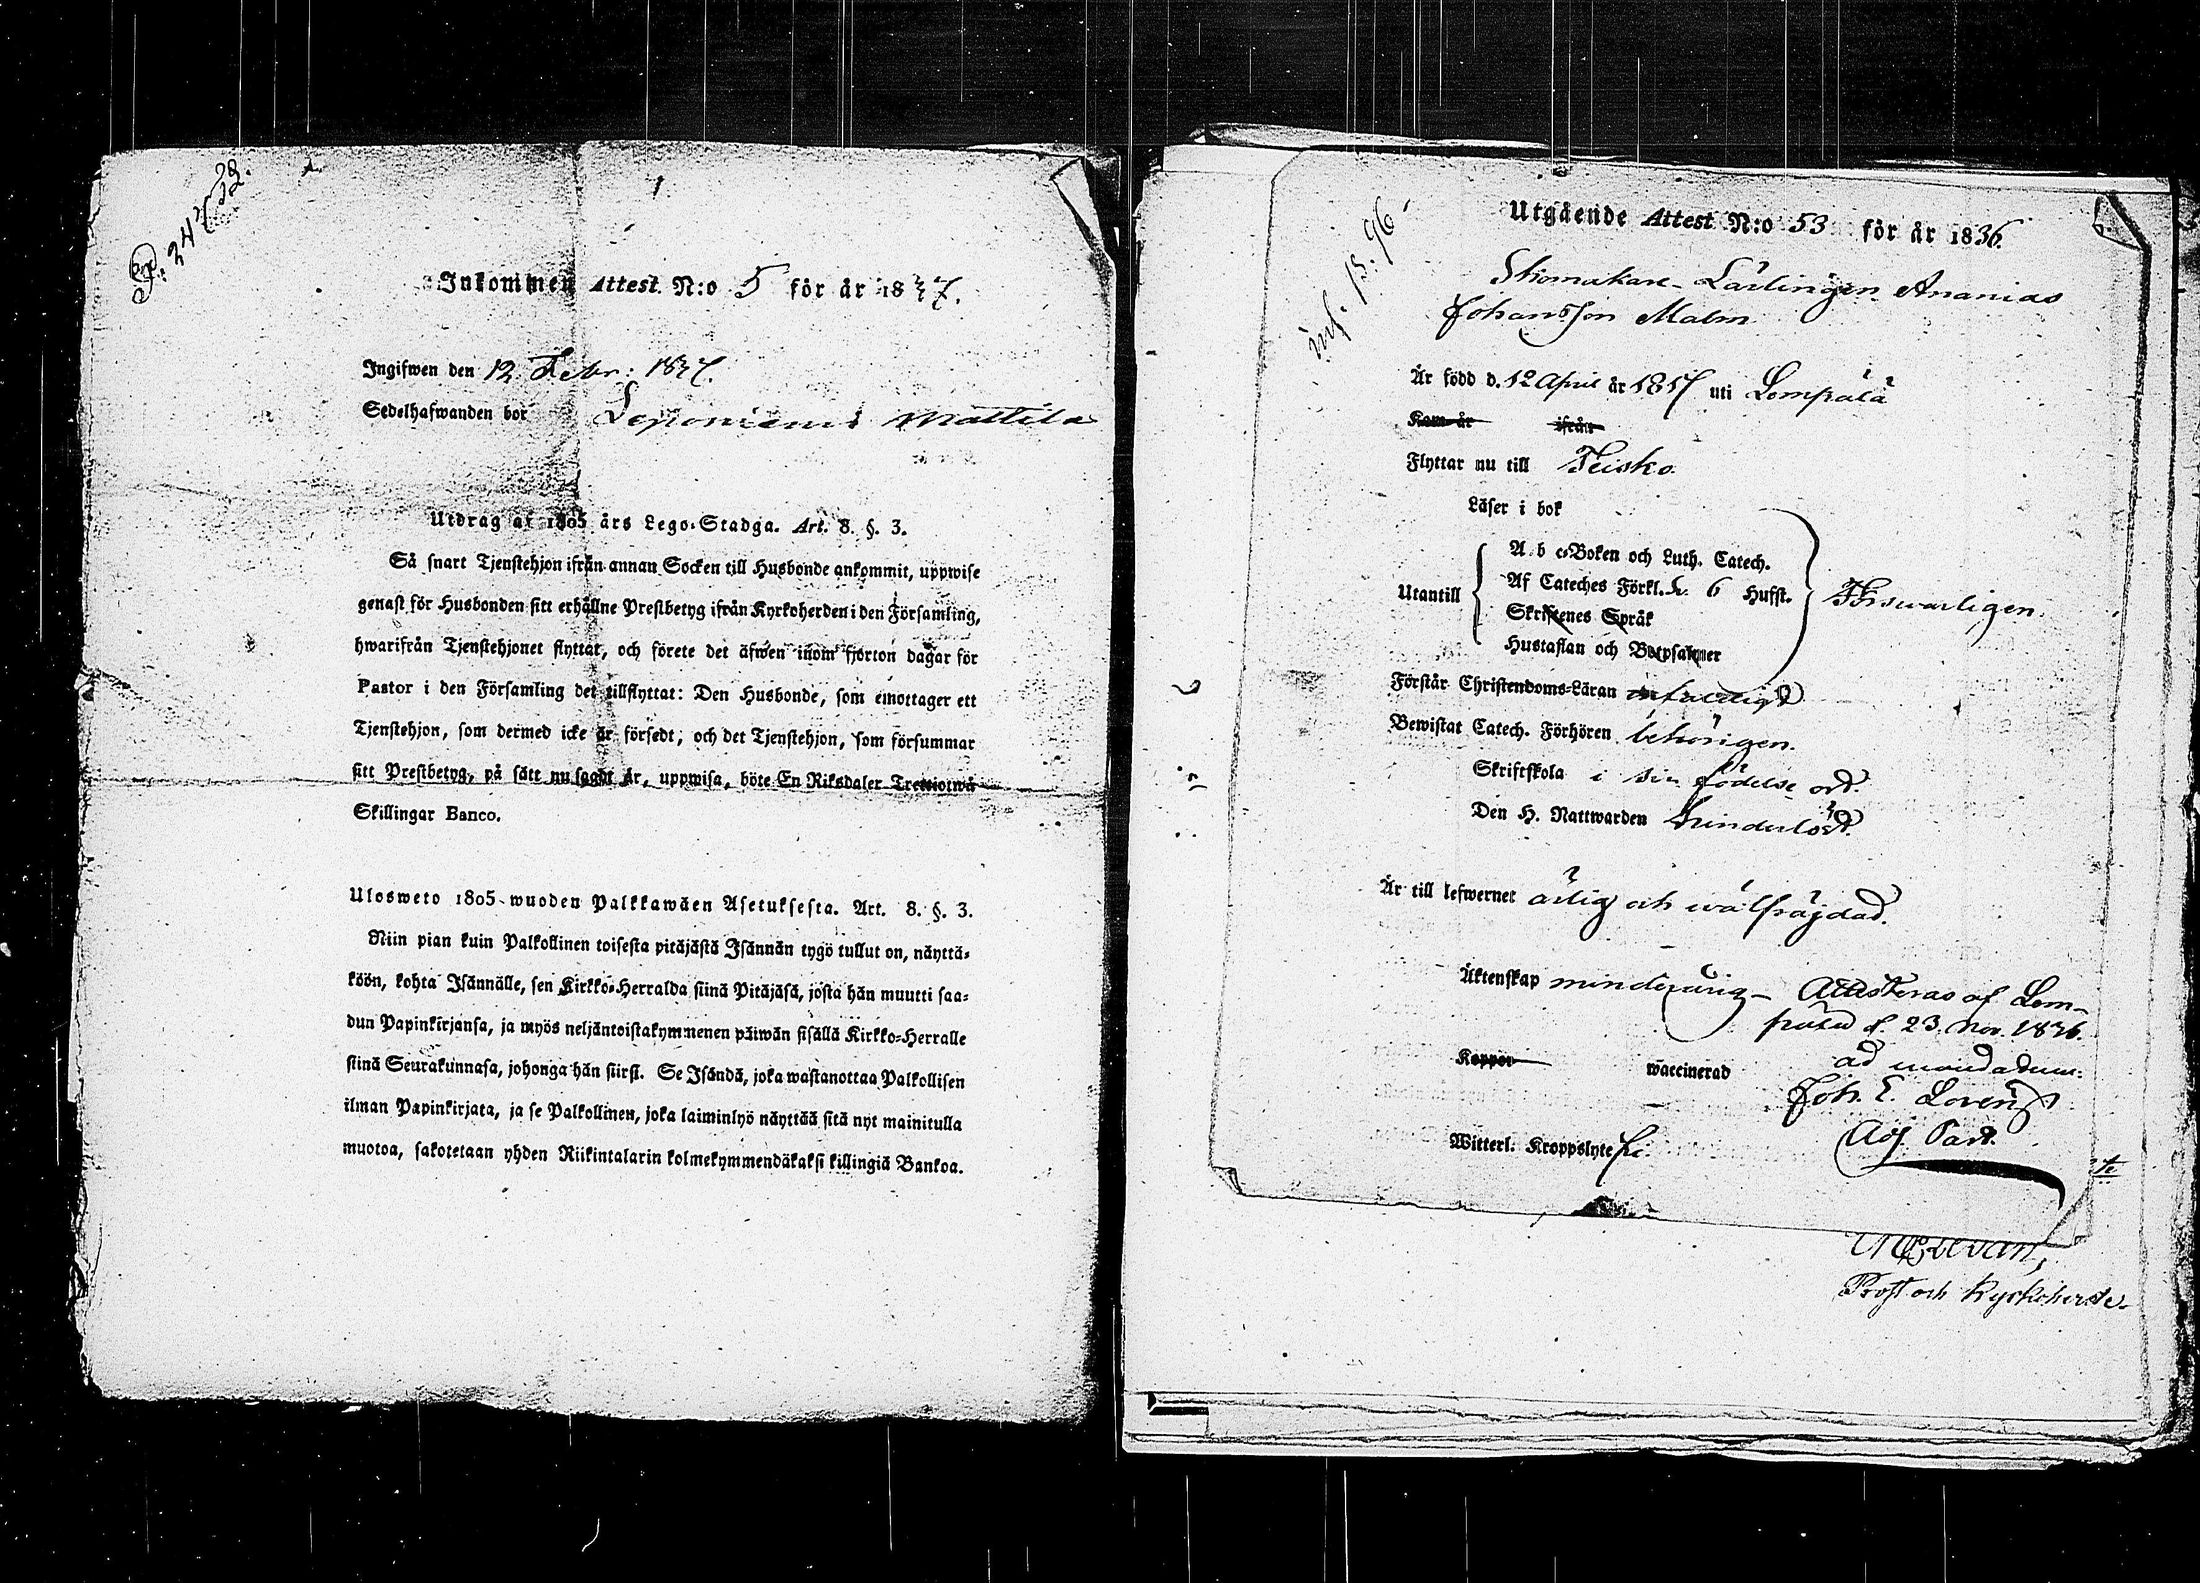 Inkommen Attest N:o 5 för år 1837.
Ingifwen den 12 Febr: 1837.
Sedelhafwanden bor Leponiemi Mattila
Utdrag af 1805 års Lego-Stadga. Art. 8. §. 3.
Så snart Tjenstehjon ifrån annan Socken till Husbonde ankommit, uppwise
genast för Husbonden sitt erhållne Prestbetyg ifrån Kyrkoherden i den Församling,
hwarifrån Tjenstehjonet flyttat, och förete det äfwen inom fjorton dagar för
Pastor i den Församling det tillflyttat: Den Husbonde, som emottager ett
Tjenstehjon, som dermed icke är försedt, och det Tjenstehjon, som försummar
sitt Prestbetyg, på sätt nu sagdt är, uppwisa, böte En Riksdaler Trettiotwå
Skillingar Banco.
Ulosweto 1805 wuoden Palkkawäen Asetuksesta. Art. 8. §. 3.
Niin pian kuin Palkollinen toisesta pitäjästä Isännän tygö tullut on, näyttä-
köön, kohta Isännälle, sen Kirkko-Herralda siinä Pitäjäsä, josta hän muutti saa-
dun Papinkirjansa, ja myös neljäntoistakymmenen päiwän sisällä Kirkko-Herralle
siinä Seurakunnasa, johonga hän siirsi. Se Isändä, joka wastanottaa Palkollisen
ilman Papinkirjata, ja se Palkollinen, joka laiminlyö näyttää sitä nyt mainitulla
muotoa, sakotetaan yhden Riikintalarin kolmekymmendäkaksi killingiä Bankoa.
Utgående Attest N:o 53 för år 1836.
Skomakare-Lärlingen Ananias
Johansson Malm
Är född d. 12 April år 1817 uti Lempälä
Kom år ifrån
Flyttar nu till Teisko.
Läser i bok
A b c-Boken och Luth. Catech.
Utantill Af Cateches Förkl. 6 Hufst. Försvarligen.
Skriftenes Språk
Hustaflan och Botpsalmer
Förstår Christendoms-Läran enfaldigt
Bewistat Catech. Förhören behörigen.
Skriftskola i sin födelse ort.
Den H. Nattwarden hinderlöst.
Är till lefwernet ärlig och wälfrägdad.
Äktenskap minderårig - Attesteras af Lem-
pälä d. 23. Nov. 1836.
Koppor waccinerad ad mandatum:
Joh. E. Lorens
Witterl. Kroppslyte Adj. Past.
Prost och Kyrkoherde